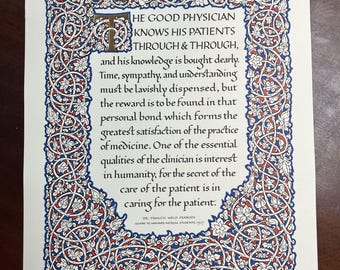 THE GOOD PHYSICIAN
KNOWS HIS PATIENTS
THROUGH & THROUGH,
and his knowledge is bought dearly.
Time, sympathy, and understanding
must be lavishly dispensed, but
the reward is to be found in that
personal bond which forms the
greatest satisfaction of the practice
of medicine. One of the essential
qualities of the clinician is interest
in humanity, for the secret of the
care of the patient is in
caring for the patient.
DR. FRANCIS WELD PEABODY